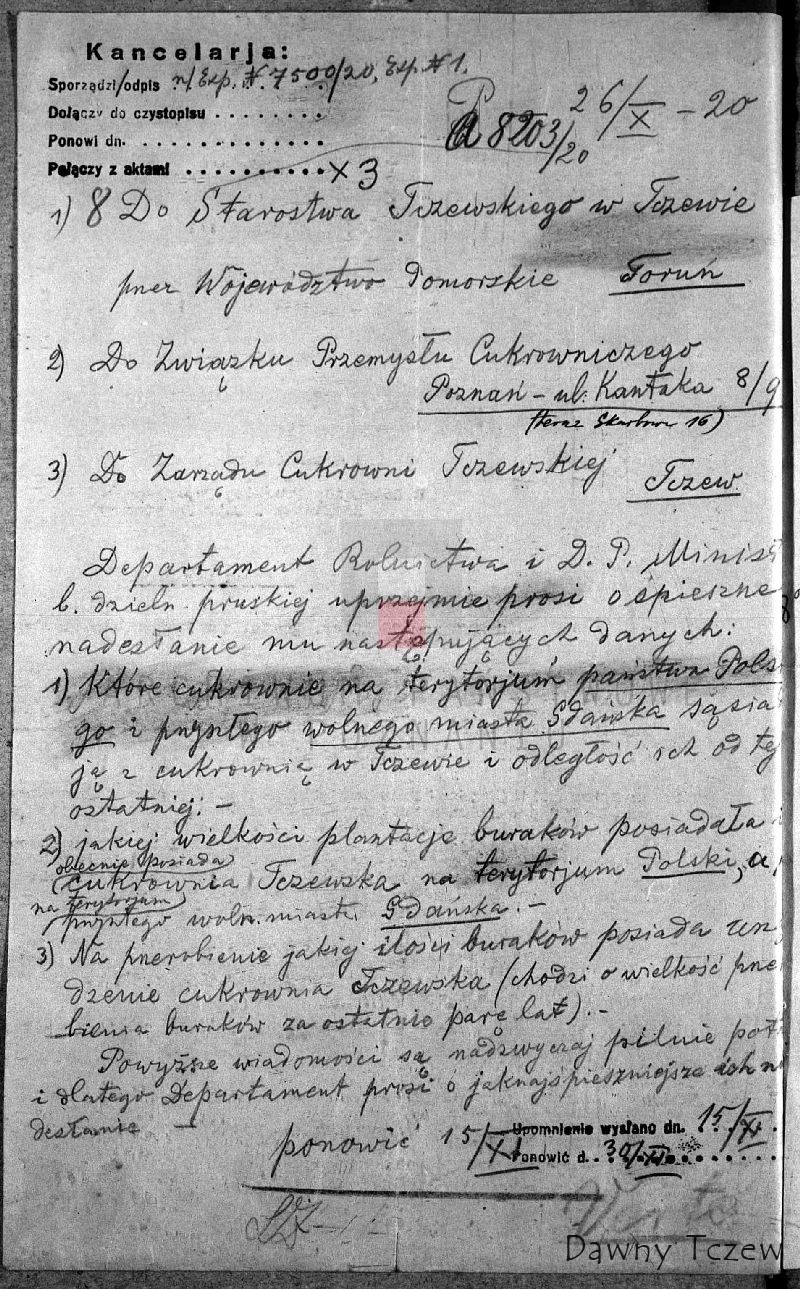 Kancelarja:
Sporządzi/odpis n/Exp. # 7500/20, Exp. # 1.
Dołączy do czystopisu ........
Ponowi dn. ...............
Połączy z aktami .......... x 3
26/X - 20
8203/20
1) 8 Do Starostwa Tczewskiego w Tczewie
przez Województwo Pomorskie Toruń
2) Do Związku Przemysłu Cukrowniczego
Poznań - ul. Kantaka 8/9
(teraz Skarbowa 16)
3) Do Zarządu Cukrowni Tczewskiej
Tczew
Departament Rolnictwa i D. P. Minist
b. dzieln. pruskiej uprzejmie prosi o śpieszne
nadesłanie mu następujących danych:
1) Które cukrownie na terytorjum państwa Pols
go i przyszłego wolnego miasta Gdańska sąsia
ją z cukrownią w Tczewie i odległość ich od tej
ostatniej. -
2) jakiej wielkości plantacje buraków posiadała i
obecnie posiada
cukrownia Tczewska na terytorjum Polski, a
na terytorjum
przyszłego woln. miasta Gdańska. -
3) Na przerobienie jakiej ilości buraków posiada urzą
dzenie cukrownia Tczewska (chodzi o wielkość prze
bienia buraków za ostatnie parę lat). -
Powyższe wiadomości są nadzwyczaj pilnie pot
i dlatego Departament prosi o jaknajśpieszniejsze ich na
desłanie -
ponowić 15/XI
Upomnienie wysłano dn. 15/XI
Ponowić d. 30/XI
Dawny Tczew